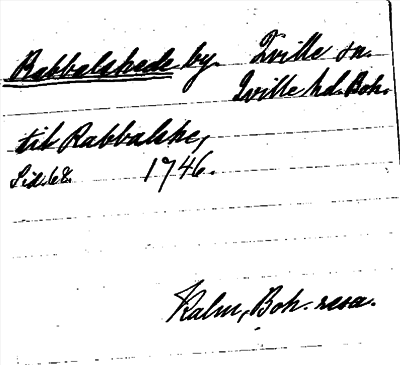 Rabbalshede by. Tville sn.
Qville hd. Boh.
til Rabbalshe,
Sid. 68. 1746.
Kalm, Boh. resa.